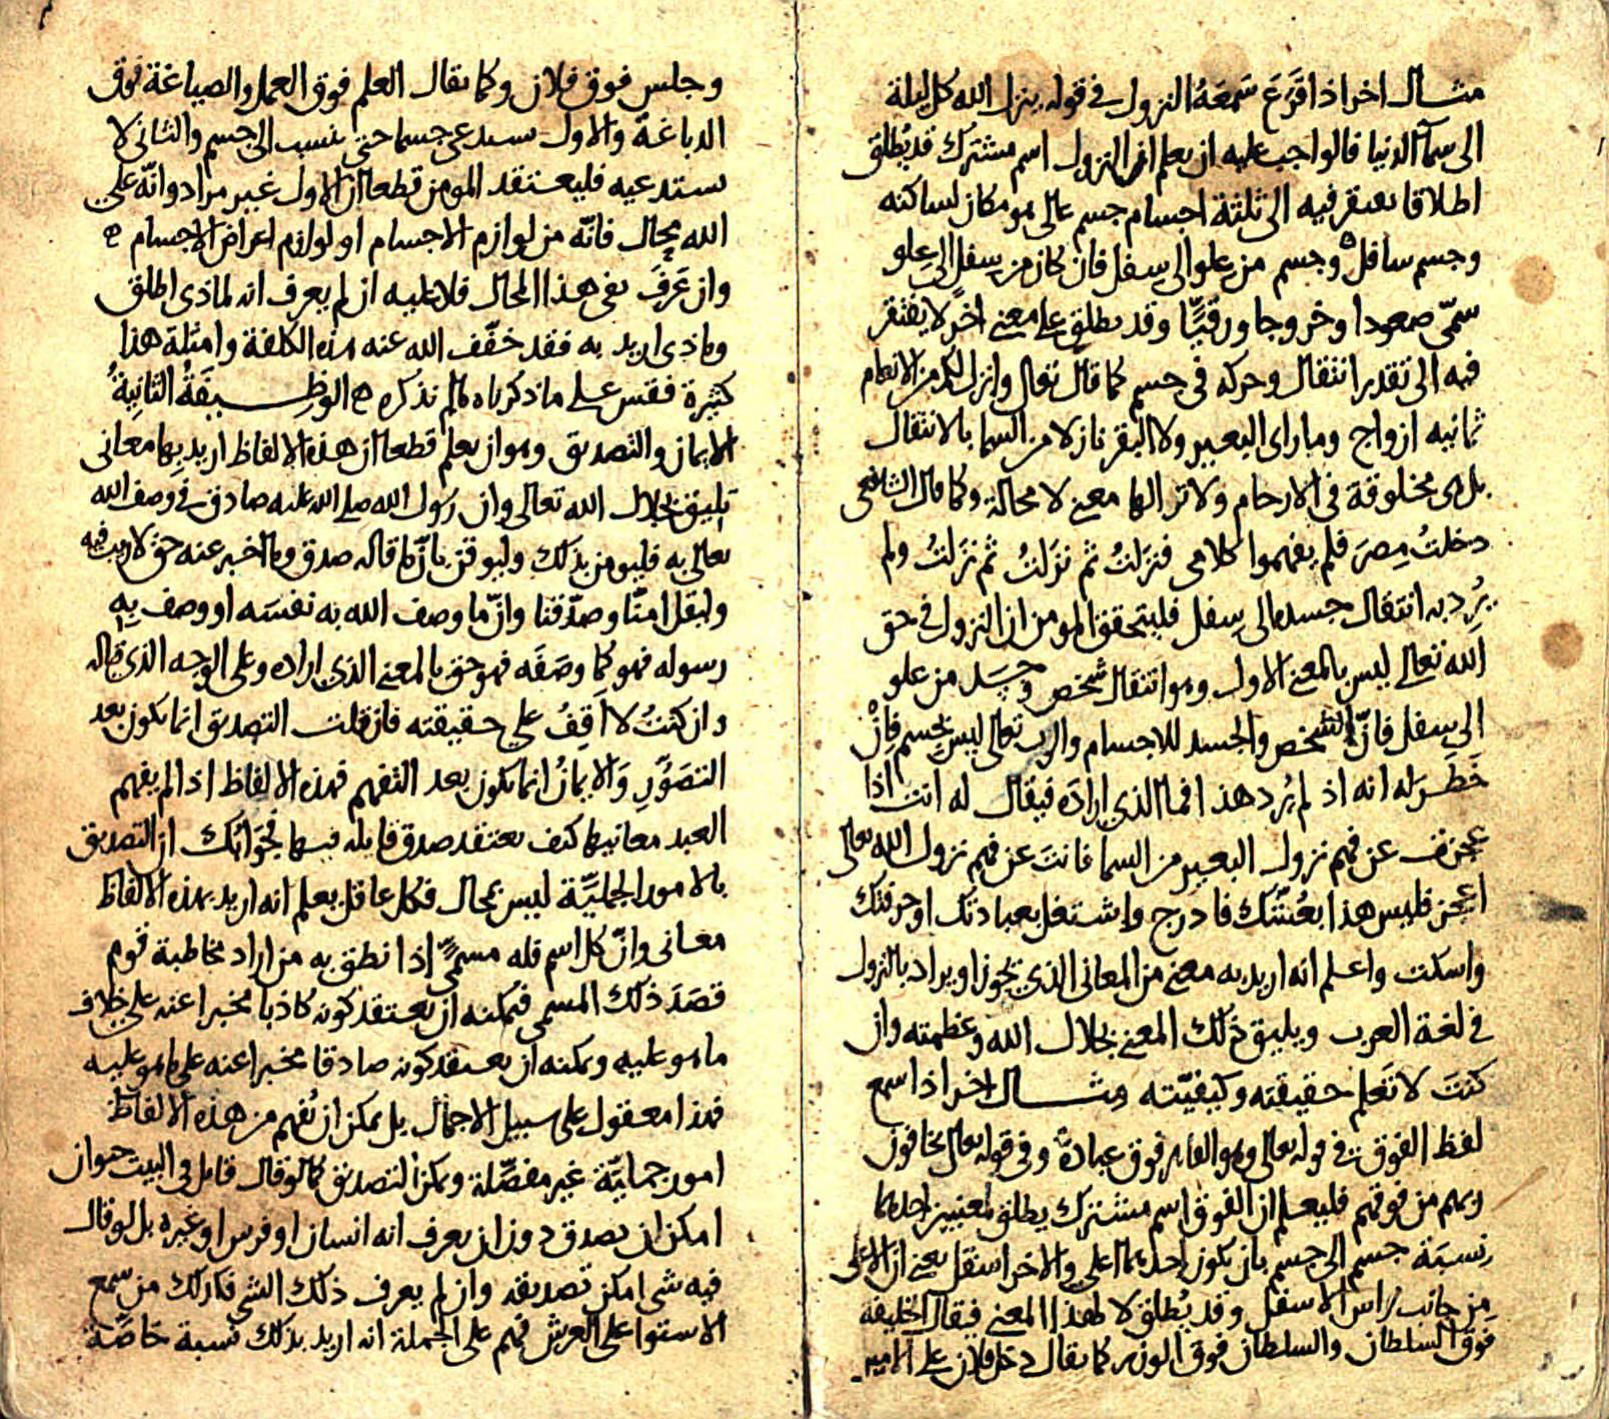 مثال اخر اذا قَرَعَ سَمعَهُ النزول في قوله ينزل الله كل ليلة
الى سمآ الدنيا فالواجب عليه ان يعلم ان النزول اسم مشترك قد يُطلق
اطلاقا يفتقر فيه الى ثلثة اجسام جسم عالى هو مكان لساكنه
وجسم سافل وجسم من علو الى سفل فان كان من سفل الى علو
سمّى صعودا وخروجا ورقيًّا وقد يطلق على معنى اخر لا يفتقر
فيه الى تقدير انتقال وحركه فى جسم كما قال تعالى وانزل لكم من الانعام
ثمانيه ازواج وما راى البعير ولا البقر نازلا من السما بالانتقال
بل هى مخلوقة فى الارحام ولانزالها معنى لا محالة وكما قال الشافعى
دخلتُ مِصرَ فلم يفهموا كلامى فنزلتُ ثم نزلتُ ثم نزلتُ ولم
يُرِد به انتقال جسده الى سفل فليتحقق المومن ان النزول فى حق
الله تعالى ليس بالمعنى الاول وهو انتقال شخص وجسد من علو
الى سفل فانّ الشخص والجسد للاجسام والرب تعالى ليس بجسم فإن
خَطَرَ له انه اذ لم يُرد هذا فما الذى ارادَه فيقال له انت اذا
عجزت عن فهم نزول البعير من السما فانتَ عن فهم نزول الله تعالى
اعجز فليس هذا بعُشّك فادرج واشتغل بعبادتك او حرفتك
واسكت واعلم انه اريد به معنى من المعانى الذى يجوز ان يراد بالنزول
فى لغة العرب ويليق ذلك المعنى بجلال الله وعظمته وان
كنتَ لا تعلم حقيقته وكيفيّته مثال اخر اذا سمع
لفظ الفوق فى قوله تعالى وهو القاهر فوق عباده وفى قوله تعالى يخافون
ربهم من فوقهم فليعلم ان الفوق اسم مشترك يطلق لمعنيين احدهما
نسبَة جسم الى جسم بان يكون احدهما اعلى والاخر اسفل يعنى ان الاعلى
مِن جانب راس الاسفل وقد يُطلق لا لهذا المعنى فيقال الخليفة
فوق السلطان والسلطان فوق الوزير كما يقال دخل فلان على الامير
وجلس فوق فلان وكما يقال العلم فوق العمل والصياغة فوق
الدباغة والاول يستدعى جسما حتى ينسب الى جسم والثانى لا
يستدعيه فليعتقد المومن قطعا ان الاول غير مراد وانّه على
الله محال فانّه من لوازم الاجسام او لوازم اعراض الاجسام
وان عَرَفَ نفى هذا المحال فلا عليه ان لم يعرف انه لماذى اطلق
وماذى اريد به فقد خفّف الله عنه هذه الكلفة وامثلة هذا
كثيرة فقس على ما ذكرناه ما لم نذكره الوظيفَةُ الثانِيةُ
الايمان والتصديق وهو ان يعلم قطعا ان هذه الالفاظ اريد بها معانى
تليق بجلال الله تعالى وان رسول الله صلى الله عليه صادق فى وصف الله
تعالى به فليومن بذلك وليوقن بانّ ما قاله صدق وما اخبر عنه حق لا ريب فيه
وليقل امنّا وصدّقنا وانّ ما وصف الله به نفسَه او وصف بِهِ
رسوله فهو كما وصَفَه فهو حق بالمعنى الذى اراده وعلى الوجه الذى قاله
وان كنتُ لا اَقِفُ على حقيقته فان قلت التصديق انما يكون بعد
التصَوُّرِ وَالايمانُ انما يكون بعد التفهم فهذه الالفاظ اذا لم يفهم
العبد معانيها كيف يعتقد صدق قايله فيها فجَوابُك ان التصديق
بالامور الجمليَّة ليس بمحال فكل عاقل يعلم انه اريد بهذه الالفاظ
معانى وانّ كل اسم فله مسمّىً اذا نطق به من اراد مخاطبة قوم
قصَدَ ذلك المسمى فيمكنه ان يعتقد كونه كاذبا مخبرا عنه على خلاف
ما هو عليه ويمكنه ان يعتقد كونه صادقا مخبرا عنه على ما هو عليه
فهذا معقول على سبيل الاجمال بل يمكن ان يُفهم من هذه الالفاظ
امور جمليّة غير مفصَّلة ويمكن التصديق كما لو قال قايل فى البيت حيوان
امكن ان يصدق دون ان يعرف انه انسان او فرس او غيره بل لو قال
فيه شى امكن تصديقه وان لم يعرف ذلك الشى فكذلك من سمع
الاستوا على العرش فهم على الجملة انه اريد بذلك نسبة خاصَّة